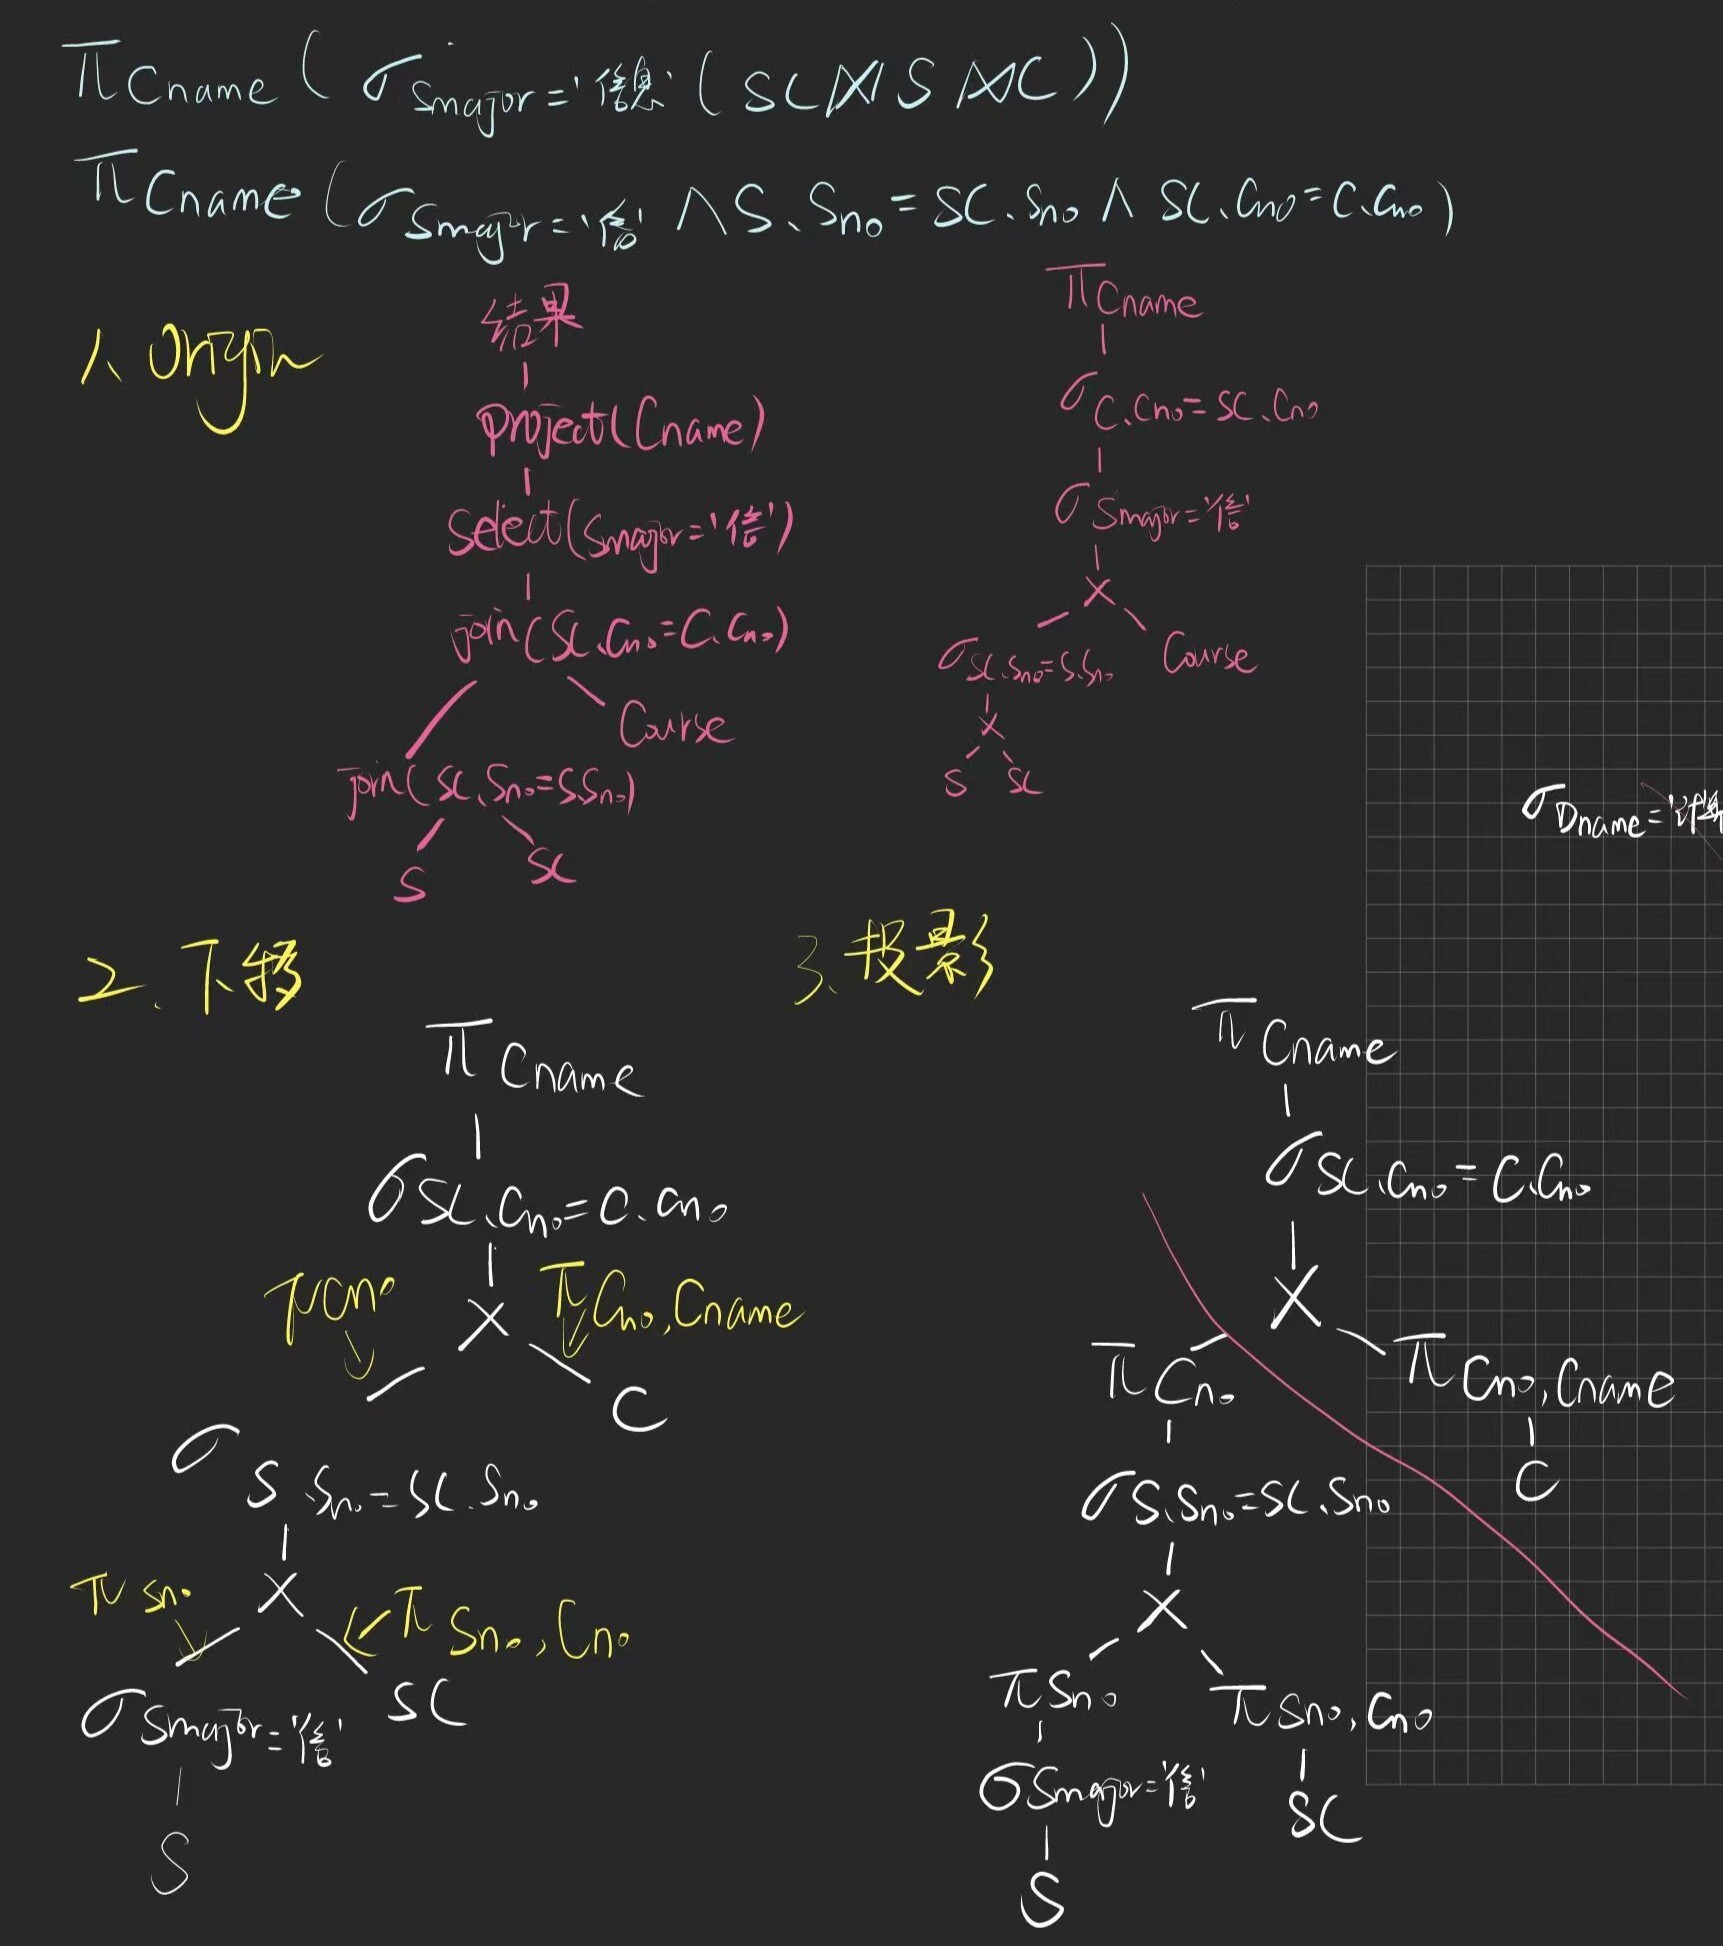 π Cname ( σ Smajor='信息' ( SC⋈S⋈C ) )
π Cname ( σ Smajor='信' ∧ S.Sno=SC.Sno ∧ SC.Cno=C.Cno )
1、Origin
结果
project(Cname)
Select(Smajor='信')
join(SC.Cno=C.Cno)
Course
join(SC.Sno=S.Sno)
S
SC
π Cname
σ C.Cno=SC.Cno
σ Smajor='信'
×
σ SC.Sno=S.Sno
Course
×
S
SC
σ Dname='计
2、下移
π Cname
σ SC.Cno=C.Cno
π Cno
×
π Cno,Cname
C
σ S.Sno=SC.Sno
π Sno
×
π Sno,Cno
σ Smajor='信'
SC
S
3、投影
π Cname
σ SC.Cno=C.Cno
×
π Cno
π Cno,Cname
C
σ S.Sno=SC.Sno
×
π Sno
π Sno,Cno
σ Smajor='信'
SC
S